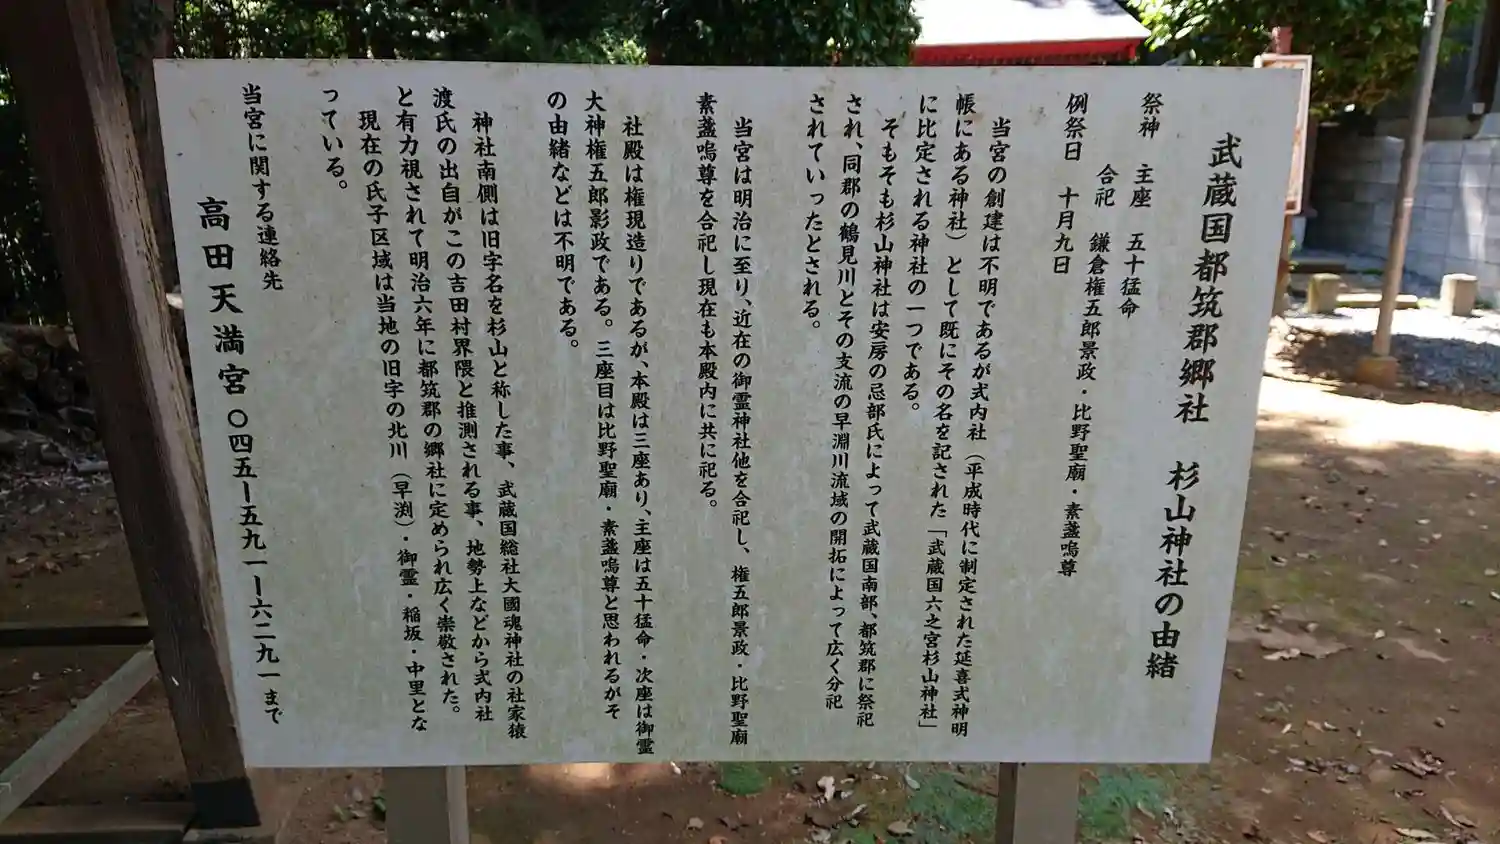 武蔵国都筑郡郷社 杉山神社の由緒
祭神 主座 五十猛命
合祀 鎌倉権五郎景政・比野聖廟・素盞嗚尊
例祭日 十月九日
当宮の創建は不明であるが式内社(平成時代に制定された延喜式神明
帳にある神社)として既にその名を記された「武蔵国六之宮杉山神社」
に比定される神社の一つである。
そもそも杉山神社は安房の忌部氏によって武蔵国南部、都筑郡に祭祀
され、同郡の鶴見川とその支流の早淵川流域の開拓によって広く分祀
されていったとされる。
当宮は明治に至り、近在の御霊神社他を合祀し、権五郎景政・比野聖廟
素盞嗚尊を合祀し現在も本殿内に共に祀る。
社殿は権現造りであるが、本殿は三座あり、主座は五十猛命・次座は御霊
大神権五郎影政である。三座目は比野聖廟・素盞嗚尊と思われるがそ
の由緒などは不明である。
神社南側は旧字名を杉山と称した事、武蔵国総社大國魂神社の社家猿
渡氏の出自がこの吉田村界隈と推測される事、地勢上などから式内社
と有力視されて明治六年に都筑郡の郷社に定められ広く崇敬された。
現在の氏子区域は当地の旧字の北川(早渕)・御霊・稲坂・中里とな
っている。
当宮に関する連絡先
高田天満宮 〇四五ー五九一ー六二九一まで